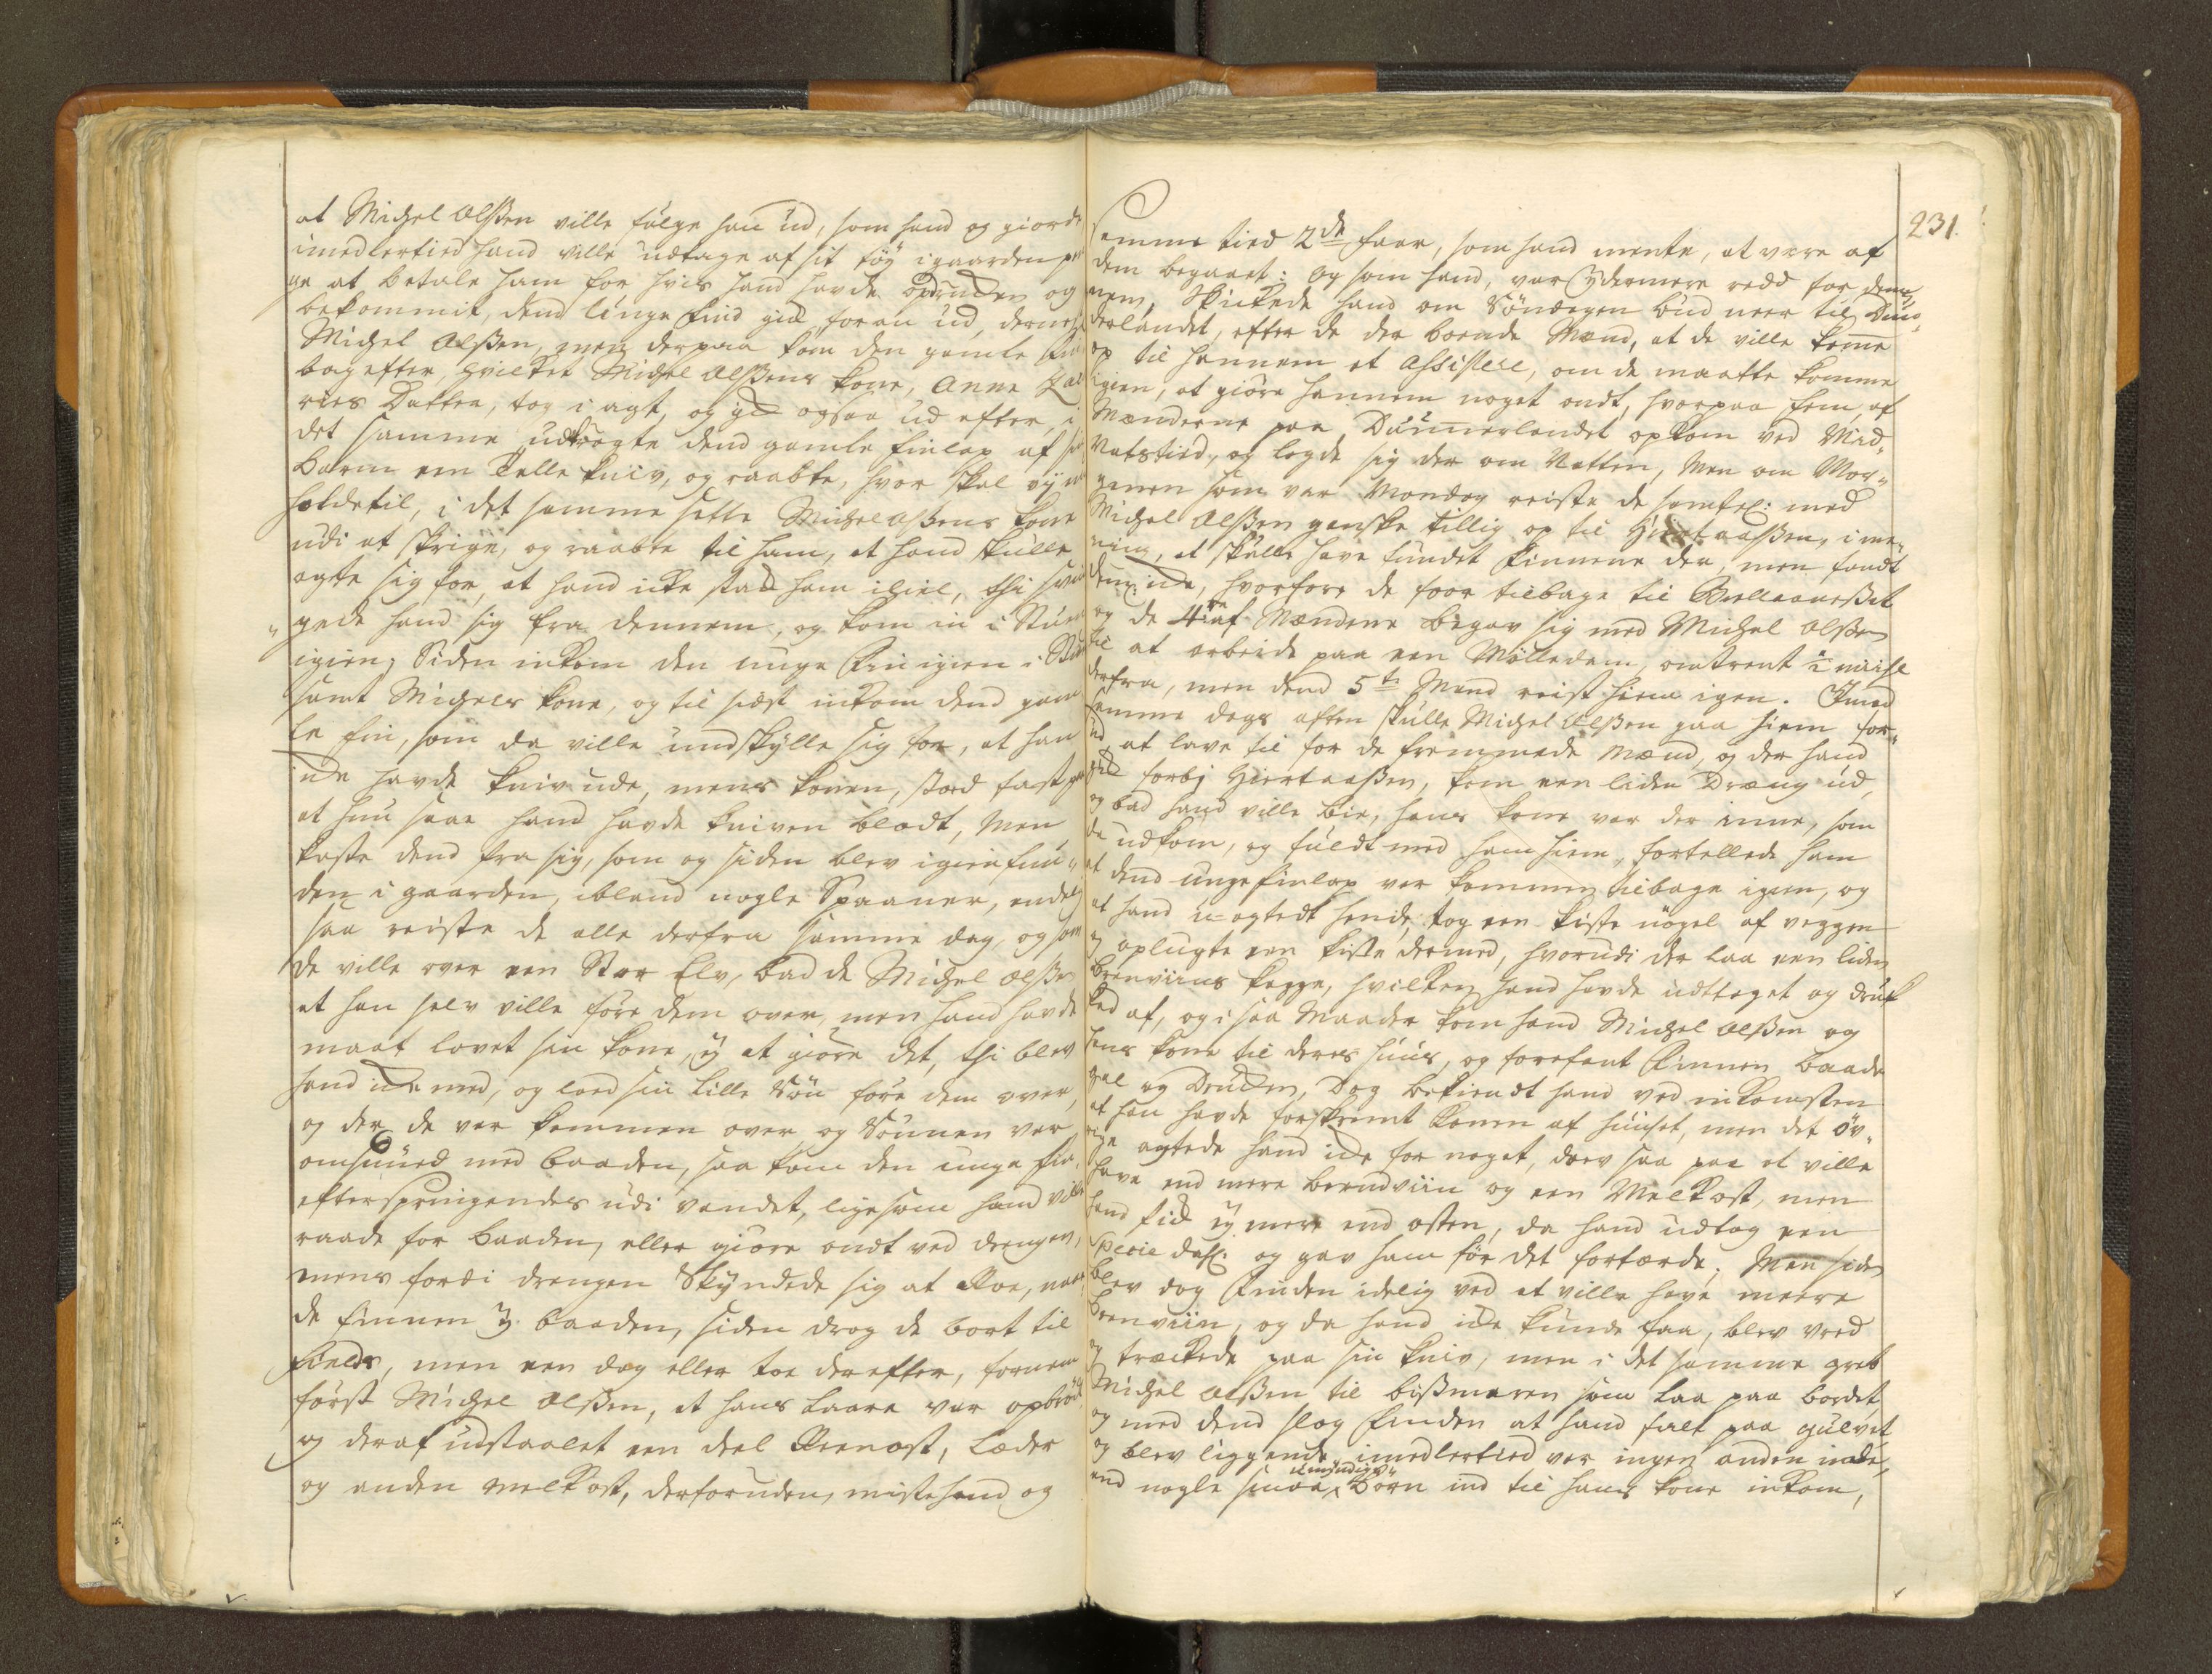 at Michel Olßen ville fülge han ud, som hand og giorde
imedlertied hand ville udtage af sit töy i gaarden
ge at betale ham for hvis hand havde opdrucken og
bekommit, dend unge find gick foran ud, dernest
Michel Olßen, men derpaa kom den gamle
bag efter, hvilket Michel Olßens kone, Anne
ries Datter, tog i agt, og gick ogsaa ud efter, i
det samme udtragte dend gamle finlap af sin
barm een kniv, og raabte, hvor skal vj
holde til, i det samme sette Michel Olßens kone
udi at skrige, og raabte til ham, at hand skulle
agte sig for, at hand icke stack ham ihiel, thi
gede hand sig fra dennem, og kom in i Stuen
igien, Siden inkom den unge fin igien i
samt Michels kone, og til sidst inkom dend gam
le fin, som da ville undskylle sig for, at han
icke havde kniv ude, mens konen, stod fast
at hun saae hand havde kniven blodt, Men
kaste dend fra sig, som og siden blev igienfun
den i gaarden, ibland nogle Spaaner, endelig
saa reiste de alle derfra samme dag, og som
de ville over een Stor Elv, bad de Michel Olßen
at han selv ville före dem over, men hand havde
maat lovet sin kone, ej at giöre det, thi blev
hand icke med, og lood sin lille Sön före dem over,
og der de var kommen over, og Sönnen var
med baaden, saa kom den unge fin
efterspringendes udi vandet, ligesom hand ville
raade for baaden, eller giöre ondt ved drengen,
mens fordi drengen Skyndede sig at Roe, naae
de finnen ej baaden, siden drog de bort til
fields, men een dag eller toe derefter, fornam
först Michel Olßen, at hans Laave var opbrödt
og deraf udstaalet een deel Reenost, Læder
og anden melkost, derforuden, mistehand og

231.
samme tied 2de faar, som hand mente, at være af
dem begaaet: Og som hand, var ydermere redd for den-
nem, Skickede hand om Söndagen bud neer til
derlandet, efter de der boende Mænd, at de ville komme
op til hannem at assistere, om de maatte komme
igien, at giöre hannem noget ondt, hvorpaa fem af
Mænderne paa Dünnerlandet opkom ved Mid-
natstied, og lagde sig der om Natten, Men om Mor-
genen som var Mondag reiste de samtl: med
Michel Olßen ganske tillig op til Hiertaaßen, i me-
ning, at skulle have fundet finnene der, men fandt
dem icke, hvorfore de foor tilbage til
og de 4re af Mændene begav sig med Michel Olßen
til at arbeide paa een Mölledam, omtrent ½ miil
derfra, men dend 5te Mand reist hiem igien. Imod
samme dags aften skulle Michel Olßen gaa hiem for-
ud at lave til for de fremmede Mænd, og der hand
gick forbj Hiertaaßen, kom een liden Dreng ud,
og bad hand ville bie, hans kone var der inne, som
da udkom, og fuldt med ham hiem, fortellede ham
at dend unge finlap var kommen tilbage igien, og
at hand u-agtedt hende, tog een kiste nögel af veggen
og oplugte een kiste dermed, hvorudi der laa een liden
brenviins kagge, hvilken hand havde udtaget og druc
ked af, og i saa Maader kom hand Michel Olßen og
hans kone til deres huus, og forefant finnen baade
gal og Drucken, Dog bekiendt hand ved inkomsten
at han havde forskremt konen af huuset, men det öv-
rige agtede hand icke for noget, drev saa paa at ville
have end mere brendviin og een Melkost, men
hand fick ej mere end osten, da hand udtog een
specie dahl: og gav ham för det fortærde; Men siden
blev dog finden idelig ved at ville have meere
brenviin, og da hand icke kunde faa, blev vred
og trækede paa sin kniv, men i det samme greb
Michel Olßen til bißmeren som laa paa bordet,
og med dend slog finden at hand falt paa gulvet
og blev liggende, imedlertied var ingen anden inde,
end nogle smaa umyndige Börn ind til hans kone inkom,